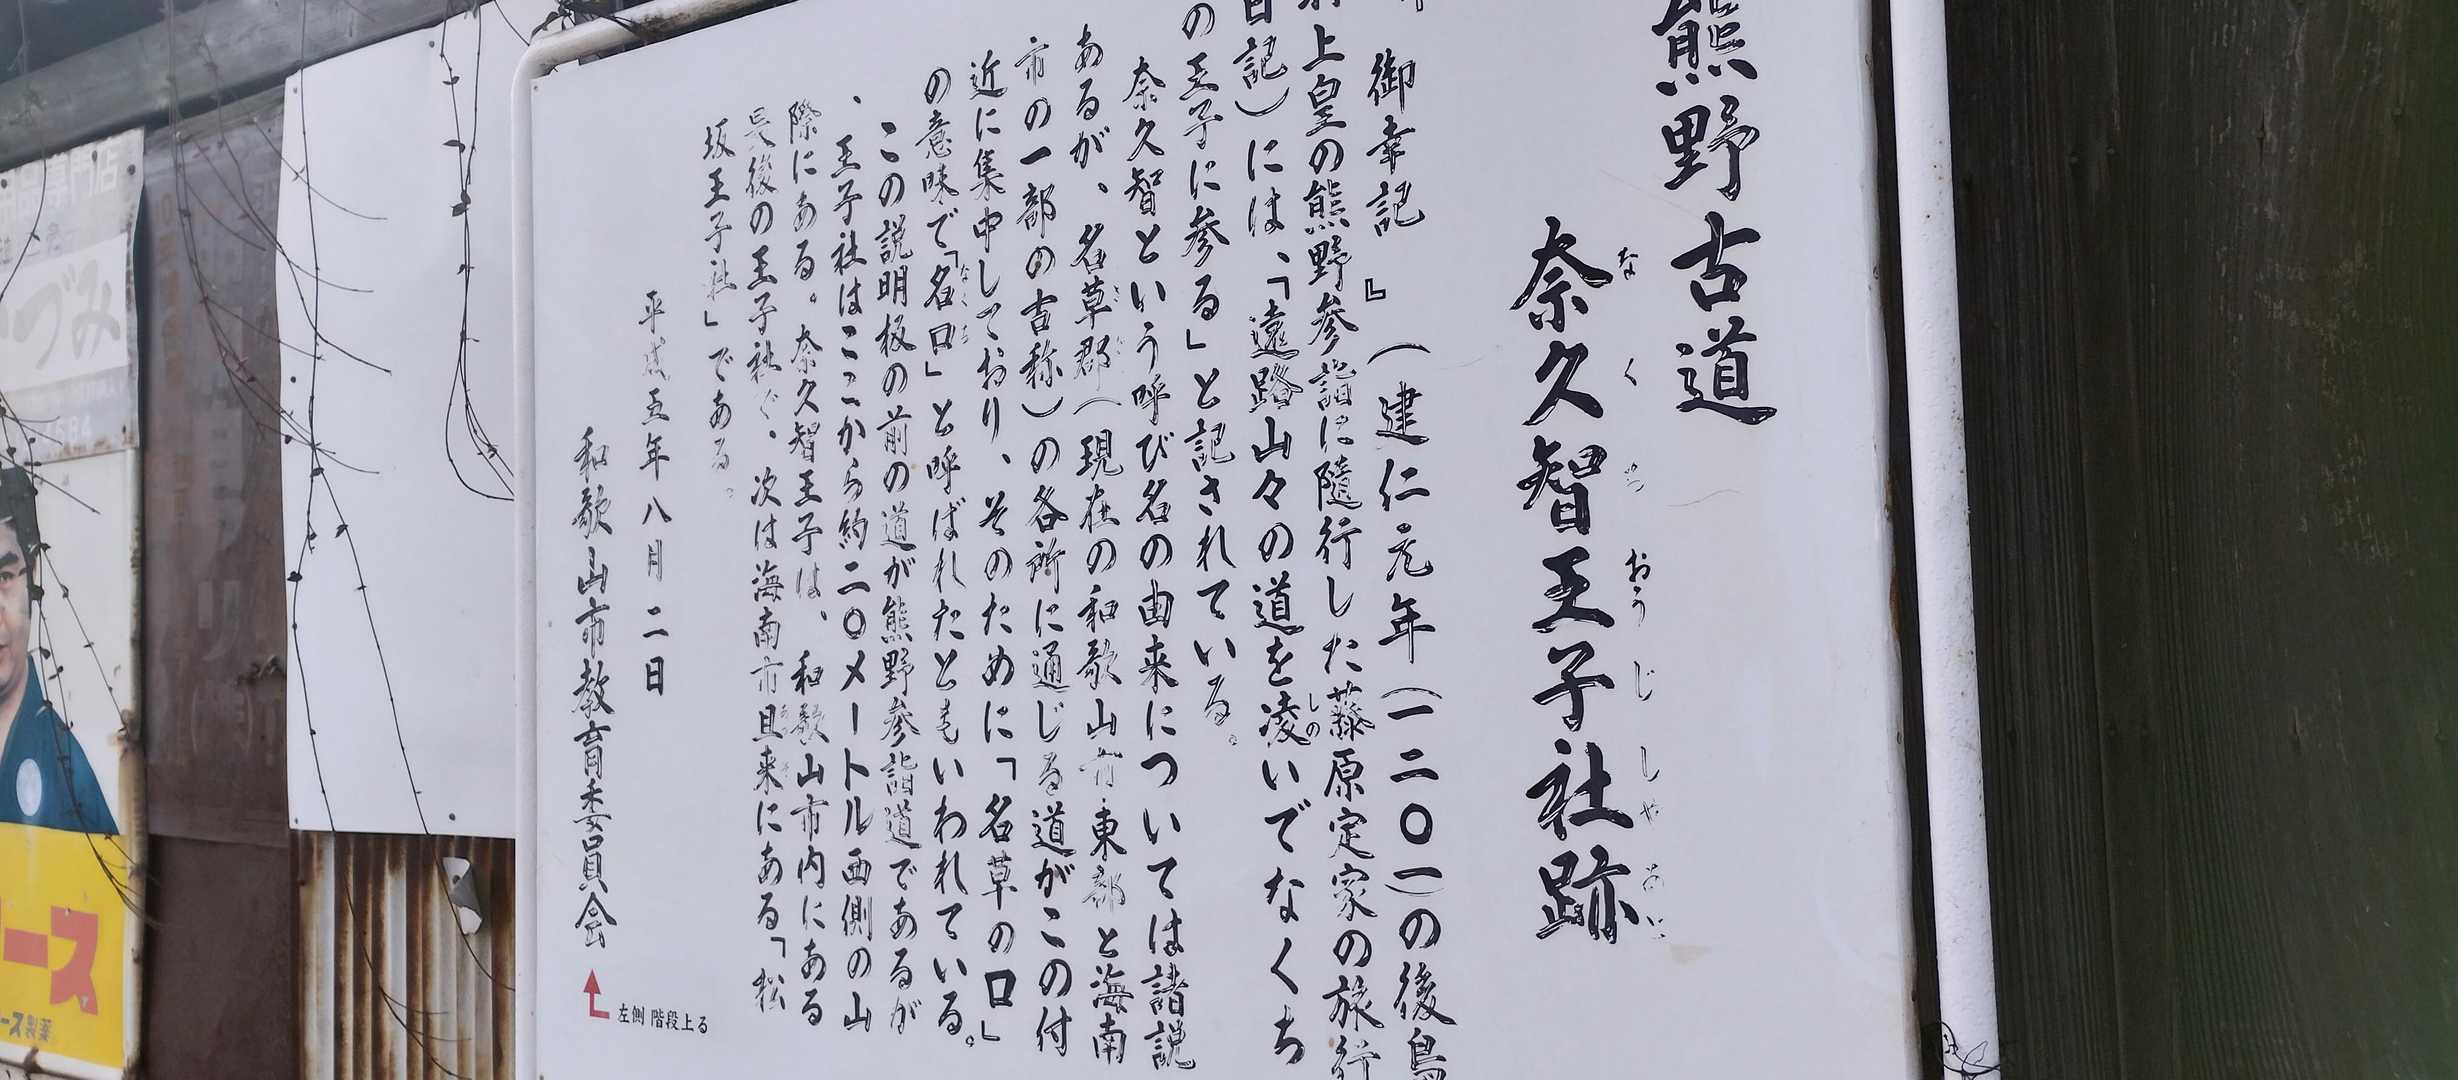 熊野古道
奈久智王子社跡
なくちおうじしゃあと
御幸記』(建仁元年(一二〇一)の後鳥
上皇の熊野参詣に随行した藤原定家の旅行
日記)には、「遠路山々の道を凌いでなくち
しの
の王子に参る」と記されている。
奈久智という呼び名の由来については諸説
あるが、名草郡(現在の和歌山市東部と海南
市の一部の古称)の各所に通じる道がこの付
近に集中しており、そのために「名草の口」
の意味で「名口」と呼ばれたともいわれている。
なくち
この説明板の前の道が熊野参詣道であるが
、王子社はここから約二〇メートル西側の山
際にある。奈久智王子は、和歌山市内にある
最後の王子社で、次は海南市且来にある「松
坂王子社」である。
平成五年八月二日
和歌山市教育委員会
左側階段上る
づみ
ース